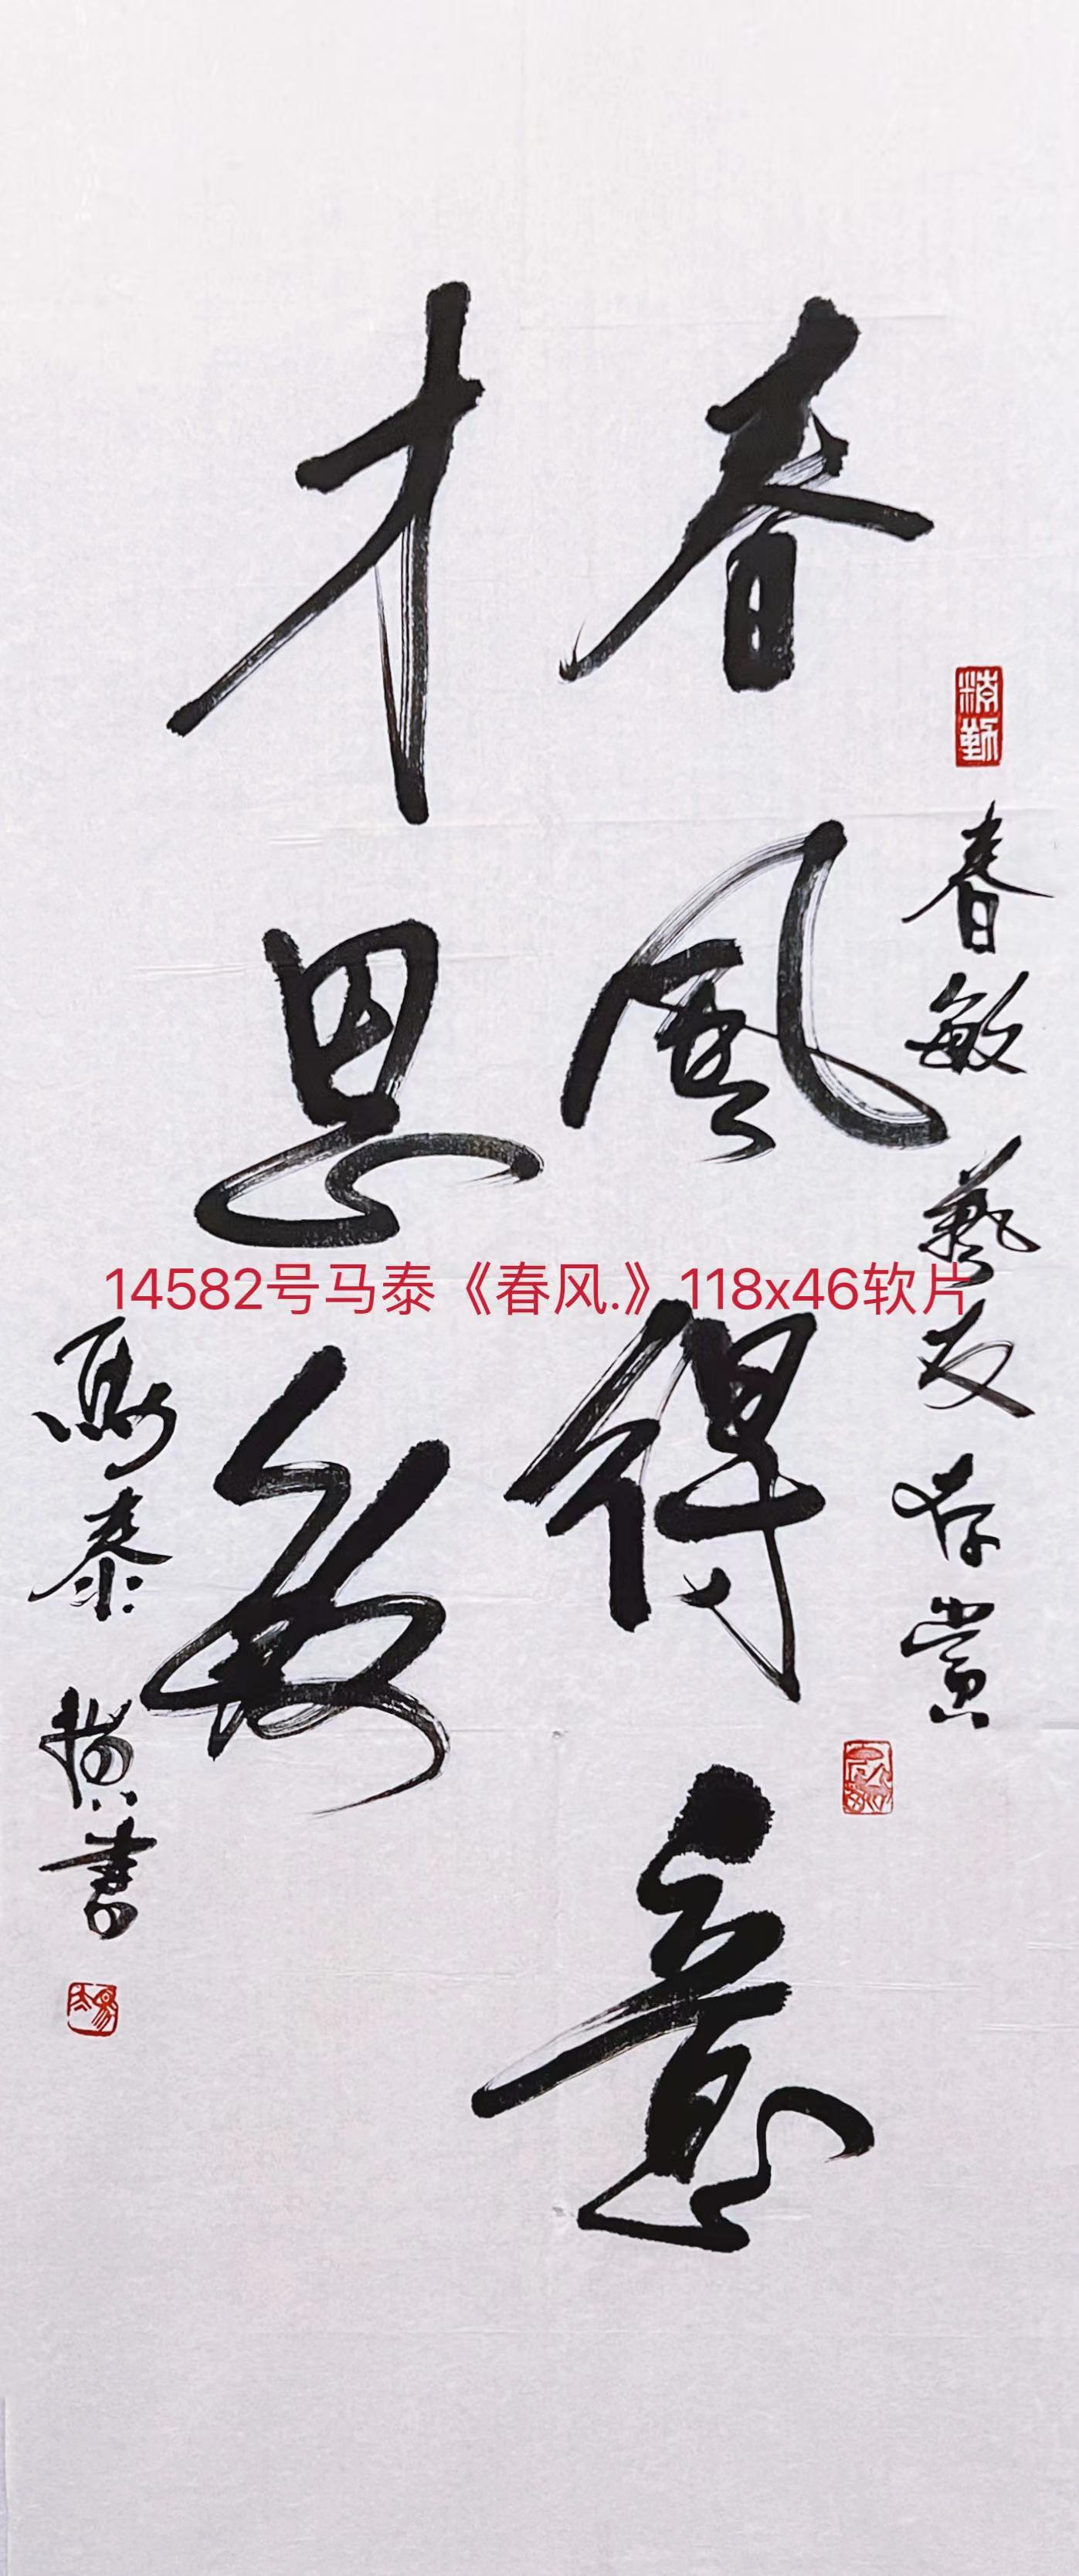 春風得意
才思敏
春敏藝友存賞
馬泰撰書
14582号马泰《春风.》118x46软片